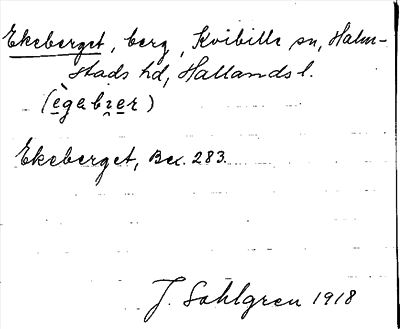 Ekeberget, berg, Kvibille sn, Halm-
stads hd, Hallands l.
(ègəbrer)
Ekeberget, Bex. 283.
J. Sahlgren 1918